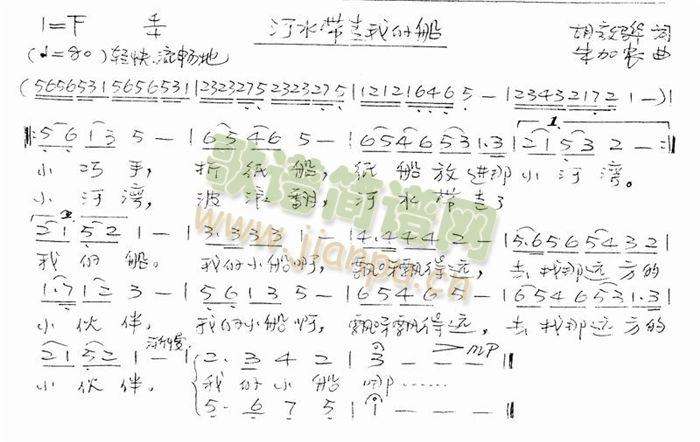 1=F 4/4 河水带走我的船 词
(♩=80) 轻快、流畅地 曲
(56565315656531|23232752323275|12121646 5 —|23432172 1 —)|
||:5613 5 —|6546 5 —|6546531.3|2153 2 —:||
小巧手，折纸船，纸船放进那小河湾。
小河湾，波浪翻，河水带走了
2152 1 —|3.333 1 —|4.444 2 —|5.65654321|
我的船。我的小船啊，飘呀飘得远，去找那远方的
1.712 3 —|5613 5 —|6546 5 —|6546531.3|
小伙伴，我的小船啊，飘呀飘得远，去找那远方的
2152 1 —|2. 3 4 2|3 — — >mp||
小伙伴，我的小船啊……
5. 6 7 5|1 — — —||
歌谱简谱网
www.jianpu.cn